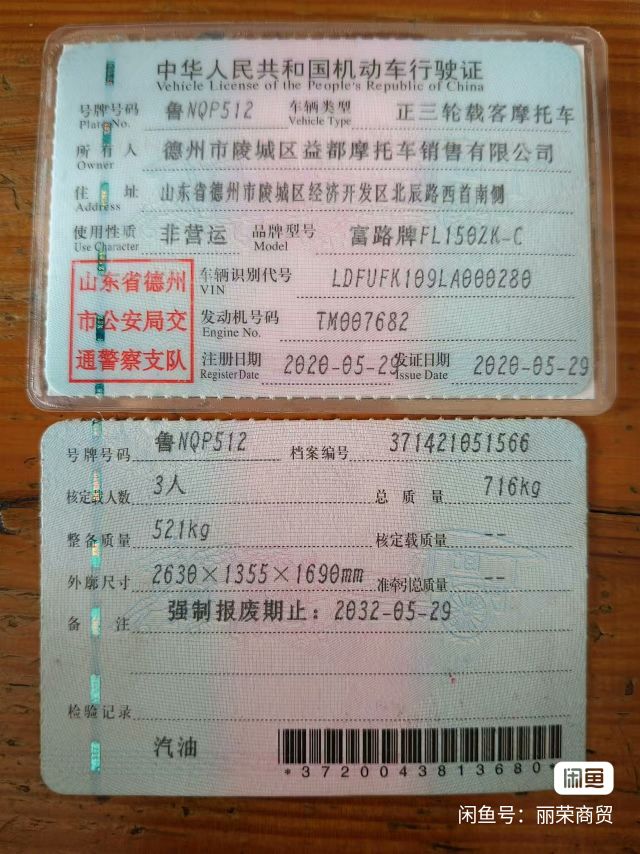 中华人民共和国机动车行驶证
Vehicle License of the People's Republic of China
号牌号码 鲁NQP512 车辆类型 正三轮载客摩托车
Plate No. Vehicle Type
所有人 德州市陵城区益都摩托车销售有限公司
Owner
住址 山东省德州市陵城区经济开发区北辰路西首南侧
Address
使用性质 非营运 品牌型号 富路牌FL150ZK-C
Use Character Model
山东省德州
市公安局交
通警察支队
车辆识别代号 LDFUFK109LA000280
VIN
发动机号码 TM007682
Engine No.
注册日期 2020-05-29 发证日期 2020-05-29
Register Date Issue Date
号牌号码 鲁NQP512 档案编号 371421051566
核定载人数 3人 总质量 716kg
整备质量 521kg 核定载质量 --
外廓尺寸 2630×1355×1690mm 准牵引总质量 --
备注 强制报废期止：2032-05-29
检验记录
汽油
*3720043813680*
闲鱼
闲鱼号：丽荣商贸